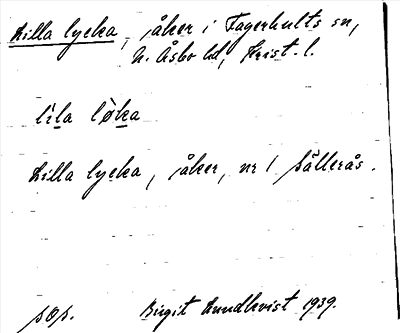 Lilla lycka, åker i Fagerhults sn,
N. Åsbo hd, Krist. l.
lìla lø̀ka
Lilla lycka, åker, nr 1 Sällerås.
sop. Birgit Lundkvist 1939.